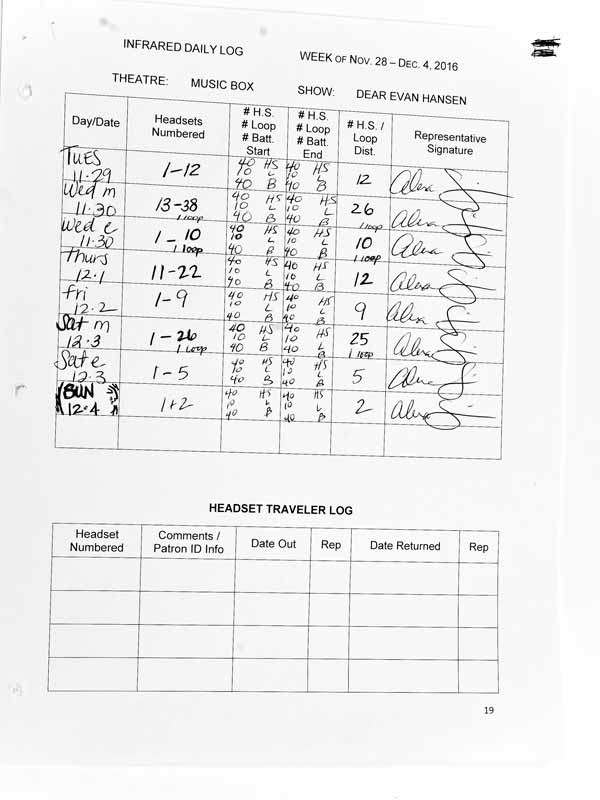 INFRARED DAILY LOG
WEEK OF NOV. 28 – DEC. 4, 2016
THEATRE: MUSIC BOX SHOW: DEAR EVAN HANSEN
Day/Date
Headsets
Numbered
# H.S.
# Loop
# Batt.
Start
# H.S.
# Loop
# Batt.
End
# H.S. /
Loop
Dist.
Representative
Signature
TUES
11.29
1-12
40 HS
10 L
40 B
40 HS
10 L
40 B
12
Alexa
Wed m
11.30
13-38
1 loop
40 HS
10 L
40 B
40 HS
10 L
40 B
26
1 loop
Alexa
Wed e
11.30
1-10
1 loop
40 HS
10 L
40 B
40 HS
10 L
40 B
10
1 loop
Alexa
Thurs
12.1
11-22
40 HS
10 L
40 B
40 HS
10 L
40 B
12
Alexa
Fri
12.2
1-9
40 HS
10 L
40 B
40 HS
10 L
40 B
9
Alexa
Sat m
12.3
1-26
1 Loop
40 HS
10 L
40 B
40 HS
10 L
40 B
25
1 loop
Alexa
Sat e
12.3
1-5
40 HS
10 L
40 B
40 HS
10 L
40 B
5
Alexa
SUN
12.4
1+2
40 HS
10 L
40 B
40 HS
10 L
40 B
2
Alexa
HEADSET TRAVELER LOG
Headset
Numbered
Comments /
Patron ID Info
Date Out
Rep
Date Returned
Rep
19